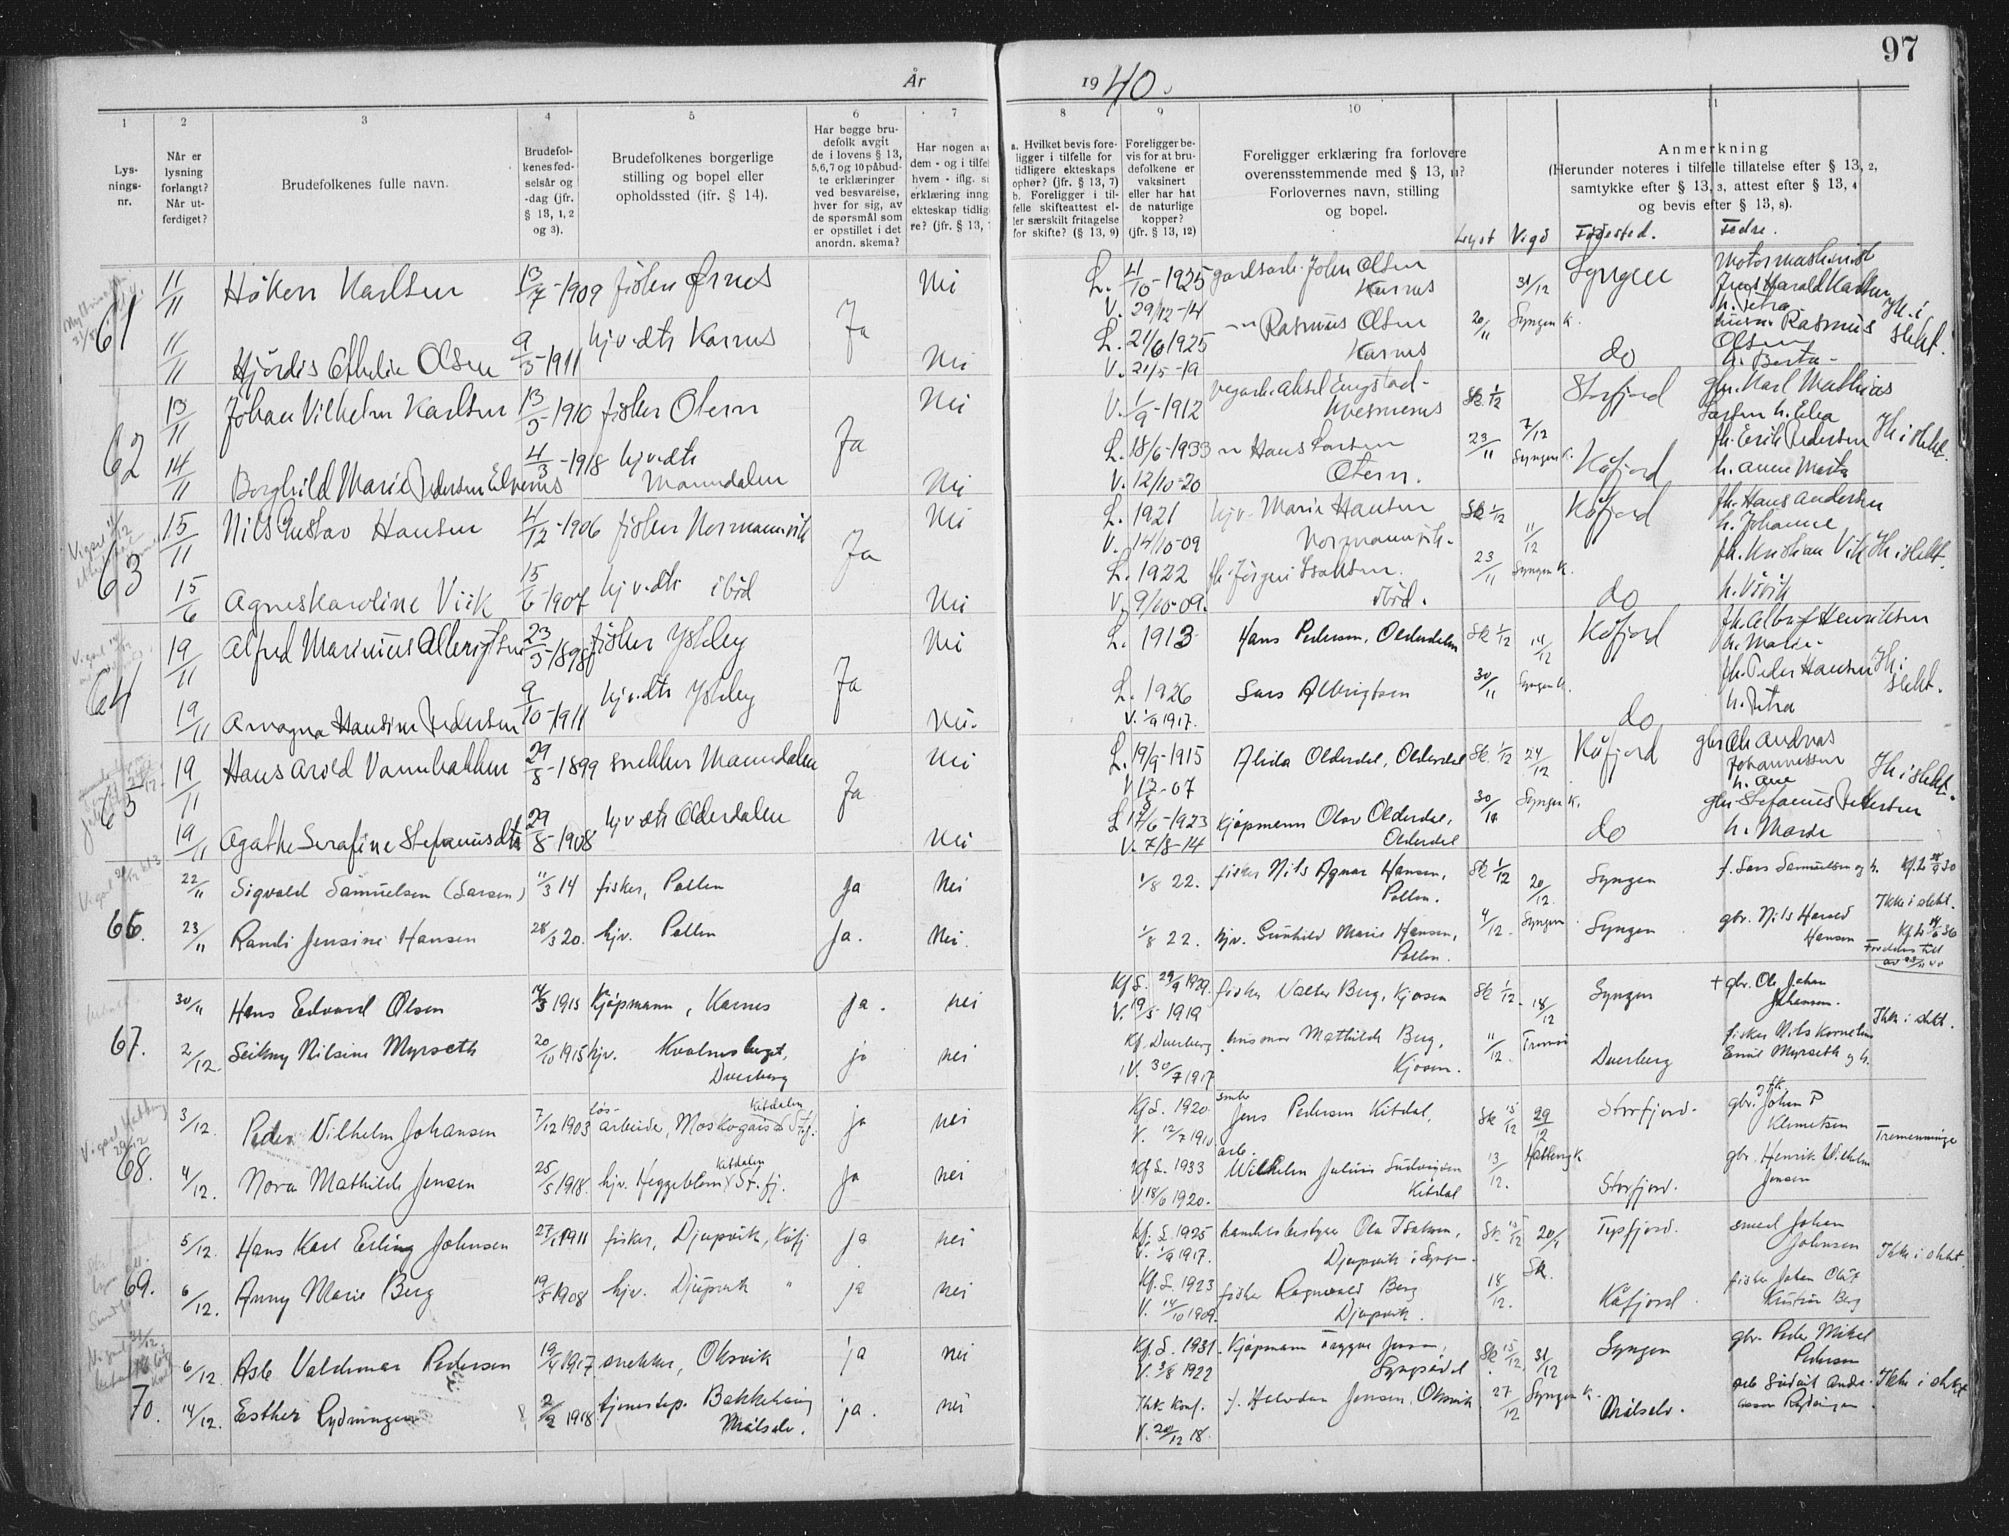 97
År 1940.
1 2 3 4 5 6 7 8 9 10 11
Lys-
nings-
nr.
Når er
lysning
forlangt?
Når ut-
ferdiget?
Brudefolkenes fulle navn.
Brudefol-
kenes fød-
selsår og
-dag (jfr.
§ 13, 1, 2
og 3).
Brudefolkenes borgerlige
stilling og bopel eller
opholdssted (jfr. § 14).
Har begge bru-
defolk avgit
de i lovens § 13,
5,6,7 og 10 påbud-
te erklæringer
ved besvarelse,
hver for sig, av
de spørsmål som
er opstillet i det
anordn. skema?
Har nogen av
dem - og i tilfel
hvem - iflg. si
erklæring inng
ekteskap tidlig
re? (jfr. § 13,
a. Hvilket bevis fore-
ligger i tilfelle for
tidligere ekteskaps
ophør? (jfr. § 13, 7)
b. Foreligger i til-
felle skifteattest el-
ler særskilt fritagelse
for skifte? (§ 13, 9)
Foreligger be-
vis for at bru-
defolkene er
vaksinert
eller har hat
de naturlige
kopper?
(jfr. § 13, 12)
Foreligger erklæring fra forlovere
overensstemmende med § 13, 11?
Forlovernes navn, stilling
og bopel.
Anmerkning
(Herunder noteres i tilfelle tillatelse efter § 13, 2,
samtykke efter § 13, 3, attest efter § 13, 4
og bevis efter § 13, 8).
Lyst Vigd Fødested. Fedre.
61 11/11 Håken Karlsen 13/7-1909 fisker Ørnes Ja Nei L. 4/10-1925 gardsarb. John Olsen 31/12 Lyngen Motormaskinist
Karnes
V. 29/12-14 h. Petra
11/11 Hjørdis Othelie Olsen 9/3-1911 hjv. dtr Karnes Nei L. 21/6 1925 Rasmus Olsen 20/11 Lyngen K. do Rasmus Olsen Ik. i slekt.
V. 21/5-19 Karnes h. Berta
62 13/11 Johan Vilhelm Karlsen 13/5-1910 fisker Oteren Ja Nei V. 1/9-1912 vegarb. Aksel Engstad Sk. 1/12 7/12 Storfjord gbr. Karl Mathias
Larsen h. Elea
14/11 Borghild Marie Pedersen Elvenes 4/3-1918 hjv. dtr Nei L. 18/6-1933 Hans Larsen 23/11 Lyngen K. Kåfjord fh. Erik Pedersen Ik i slekt.
Manndalen V. 12/10-20 Oteren. h. Anne Marta
63 15/11 Nils Gustav Hansen 4/12-1906 fisker Normannvik Ja Nei L. 1921 hjv. Marie Hansen Sk 1/12 11/12 Kåfjord fh. Hans Andersen
V. 14/10-09 Normannvik. h. Johanne
15/6 Agnes Karoline Viik 15/6-1907 hjv. dtr ibid Nei L. 1922 fh. Jørgen Isaksen. 23/11 Lyngen K. do fh. Kristian Vik Ik i slekt.
V. 9/10-09. ibid.
64 19/11 Alfred Marinius Albrigtsen 23/3-1898 fisker Ysteby Ja Nei L. 1913 Hans Pedersen, Olderdalen Sk 1/12 14/12 Kåfjord fh. Albrigt Henriksen
h. Marie
19/11 Arvagna Hansine Pedersen 9/10-1911 hjv. dtr Ysteby Nei. L. 1926 Lars Albrigtsen 30/11 Lyngen K. do fh. Peder Hansen Ik. i slekt.
V. 1/9 1917. h. Petra
65 19/11 Hans Arvid Vannbakken 29/8-1899 snekker Manndalen Ja Nei L. 19/9-1915 Alida Olderdal, Olderdal Sk. 1/12 24/12 Kåfjord gbr. Ole Andreas
Johannessen
h. Ane Ik i slekt.
19/11 Agathe Serafine Stefanusdtr 29/8-1908 hjv. dtr Olderdalen Nei L 17/6-1923 Kjøpmann Olav Olderdal, Lyngen K. do gbr. Stefanus Pedersen
V. 7/8-14 Olderdal h. Marie
66. 22/11 Sigvald Samuelsen (Larsen) 11/3 14 fisker, Pollen Ja Nei 1/8 22. fisker Nils Agnar Hansen, Sk 1/12 20/12. Lyngen f. Lars Samuelsen og h.
Pollen. Ikke i slekt.
23/11 Randi Jensine Hansen 28/3 20. hjv. Pollen Ja. Nei. 1/8 22. hjv. Gunhild Marie Hansen, 4/12. Lyngen Lyngen gbr. Nils Harald
Pollen. Hansen
67. 30/11 Hans Edvard Olsen 14/3 1913 Kjøpmann, Karnes Ja. nei Kf. L. 29/9 1929. fisker Valter Berg, Kjosen Sk 1/12. 18/12 Lyngen + gbr. Ole Johan
V. 19/5-1919 Johansen. Ikke i slekt.
2/12. Seikny Nilsine Myrseth 20/10 1915 hjv. Kvalnesberget, ja nei Kf. Dverberg husmor Mathilde Berg, 11/12. Tromsø Dverberg fisker Nils Kornelius
Dverberg V. 30/7 1917 Kjosen. Emil Myrseth og h.
68. 3/12. Peder Vilhelm Johansen 7/12 1903 løs-
arbeider, Moskogaisa Kitdalen St.fj. ja nei Kf. L. 1920. Jens Pedersen Kitdal, Sk 13/12 29/12 Storfjord. gbr. Johan P
V. 12/7 1910 Klemetsen Tremenninge
4/12. Nora Mathilde Jensen 25/5 1918. hjv. Heggeblom Kitdalen St. fj. Ja nei Kf L. 1933 arb. Wilhelm Julius Ludvigsen 13/12. Hatteng k Storfjord. gbr. Henrik Wilhelm
V. 18/6 1920. Kitdal Jensen
69. 5/12. Hans Karl Erling Johnsen 27/1 1911 fisker, Djupvik, Kåfj ja nei Kf. L. 1925 handelsbestyrer Ola Isaksen, Sk 13/12 20/1 Tysfjord. smed Johan
V. 1/9 1917. Djupvik i Lyngen. Sk. Johnsen Ikke i slekt.
6/12. Anny Marie Berg 19/5 1908 hjv. Djupvik " ja nei Kf. L. 1923 fisker Ragnvald Berg 18/12. Kåfjord. fisker Johan Olaf
V. 14/10 1909. Djupvik. Kristian Berg
70. 6/12. Asle Valdemar Pedersen 19/4 1917. snekker, Oksvik ja nei Kf. L. 1931. Kjøpmann Trygve Jensen, Sk. 13/12 31/12 Lyngen gbr. Peder Mikal
V. 3/8 1922 Lyngseidet Pedersen
14/12. Esther Rydningen 2/2 1918. tjenestep. Bakkehaug ja. nei Ikke konf. f. Halvdan Jensen, Oksvik 27/12 Lyngen K. Målselv. Ikke i slekt
Målselv. V. 20/12 18.